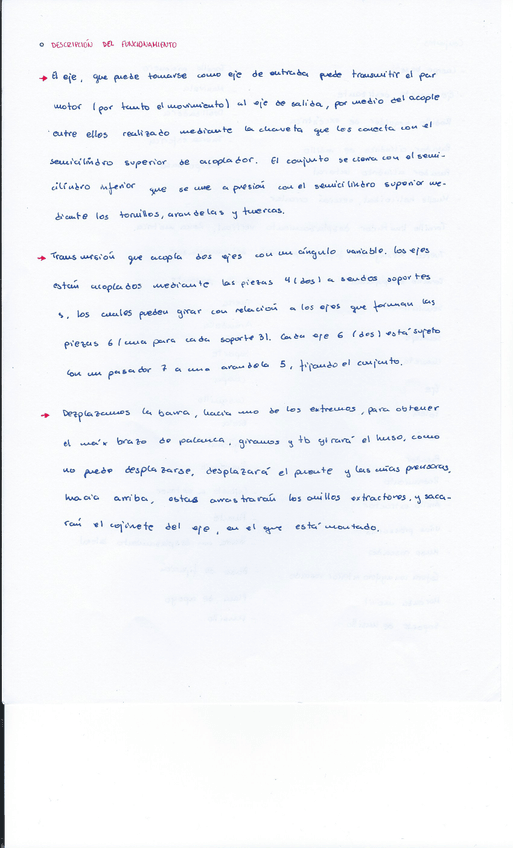 o DESCRIPCIÓN DEL FUNCIONAMIENTO
→ El eje, que puede tomarse como eje de entrada puede transmitir el par
motor (por tanto el movimiento) al eje de salida, por medio del acople
entre ellos realizado mediante la chaveta que los conecta con el
semicilindro superior de acoplador. El conjunto se cierra con el semi-
cilindro inferior que se une a presión con el semicilindro superior me-
diante los tornillos, arandelas y tuercas.
→ Transmisión que acopla dos ejes con un ángulo variable. Los ejes
están acoplados mediante las piezas 4 (dos) a sendos soportes
3, los cuales pueden girar con relación a los ejes que forman las
piezas 6 (una para cada soporte 3). Cada eje 6 (dos) está sujeto
con un pasador 7 a una arandela 5, fijando el conjunto.
→ Dezplazamos la barra, hacia uno de los extremos, para obtener
el máx brazo de palanca, giramos y tb girará el huso, como
no puede desplazarse, desplazará el puente y las uñas prensoras,
hacia arriba, estas arrastrarán los anillos extractores, y saca-
rán el cojinete del eje, en el que está montado.